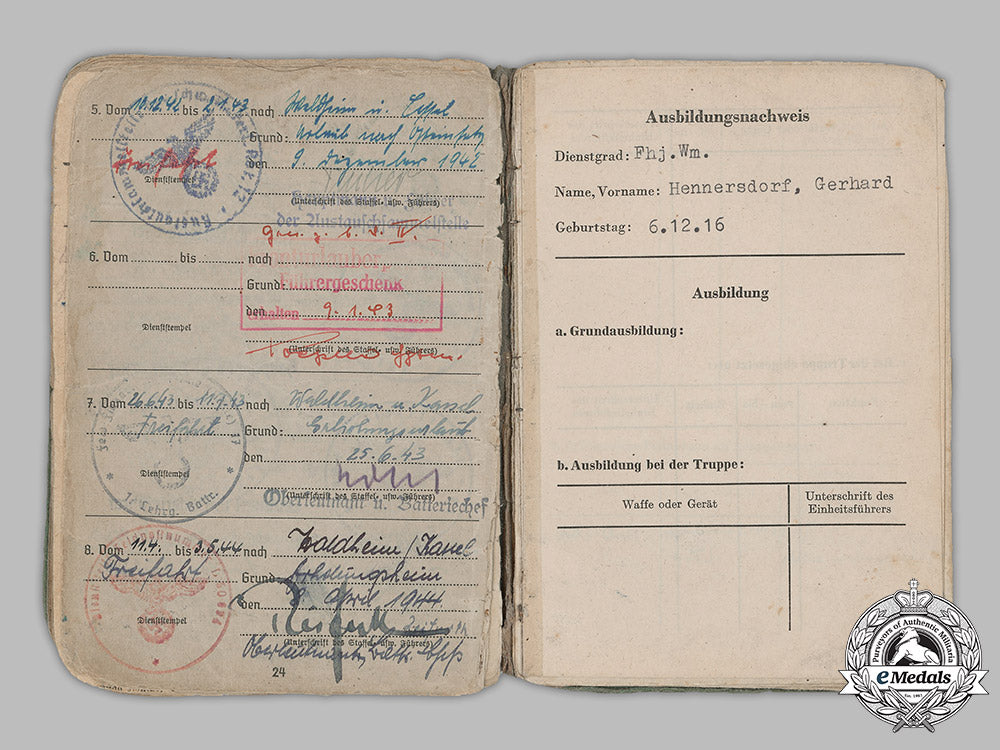 5. Vom 10.12.42 bis 2.1.43 nach Waldheim u. Cassel
Grund: Urlaub nach Osteinsatz
den 9. Dezember 1942
Dienststempel
(Unterschrift des Staffel- usw. Führers)
der Austauschsammelstelle
6. Vom bis nach
Grund:
Führergeschenk
den 9.1.43
erhalten
Dienststempel
(Unterschrift des Staffel- usw. Führers)
7. Vom 26.6.43 bis 11.7.43 nach Waldheim u. Kassel
Freifahrt Grund: Erholungsurlaub
den 25.6.43
Dienststempel
(Unterschrift des Staffel- usw. Führers)
Oberleutnant u. Batteriechef
8. Vom 11.4. bis 3.5.44 nach Waldheim/Kassel
Freifahrt Grund:
den 8. April 1944
Dienststempel
(Unterschrift des Staffel- usw. Führers)
Oberleutnant
24
Ausbildungsnachweis
Dienstgrad: Fhj.Wm.
Name, Vorname: Hennersdorf, Gerhard
Geburtstag: 6.12.16
Ausbildung
a. Grundausbildung:
b. Ausbildung bei der Truppe:
Waffe oder Gerät
Unterschrift des
Einheitsführers
Purveyors of Authentic Militaria
eMedals